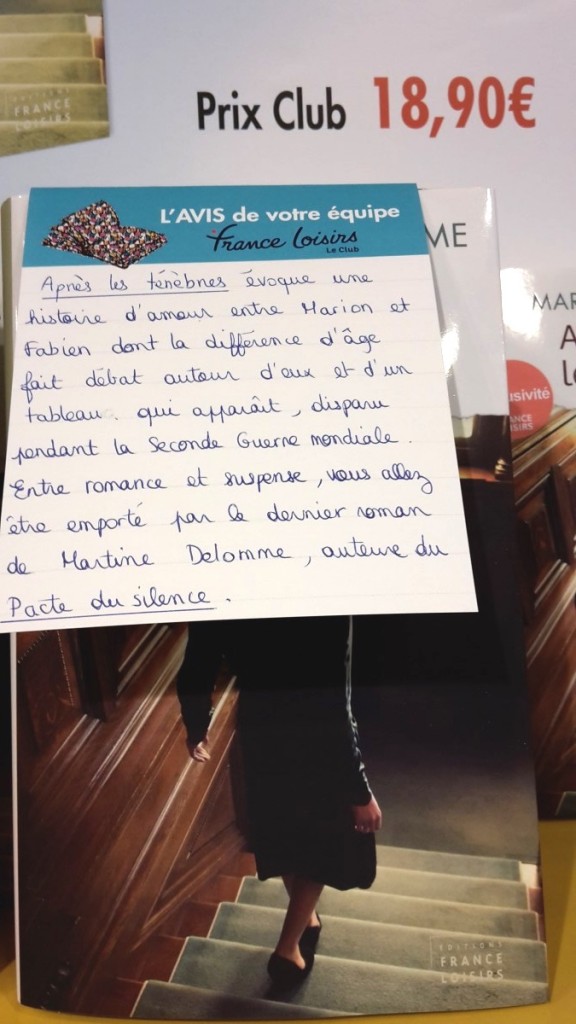 EDITIONS
FRANCE
LOISIRS
Prix Club 18,90€
L'AVIS de votre équipe
france loisirs
Le Club
Après les ténèbres évoque une
histoire d'amour entre Marion et
Fabien dont la différence d'âge
fait débat autour d'eux et d'un
tableau qui apparaît, disparu
pendant la Seconde Guerre mondiale.
Entre romance et suspense, vous allez
être emporté par le dernier roman
de Martine Delomme, auteure du
Pacte du silence.
ME
MAR
A
le
usivité
NCE
ISIRS
EDITIONS
FRANCE
LOISIRS